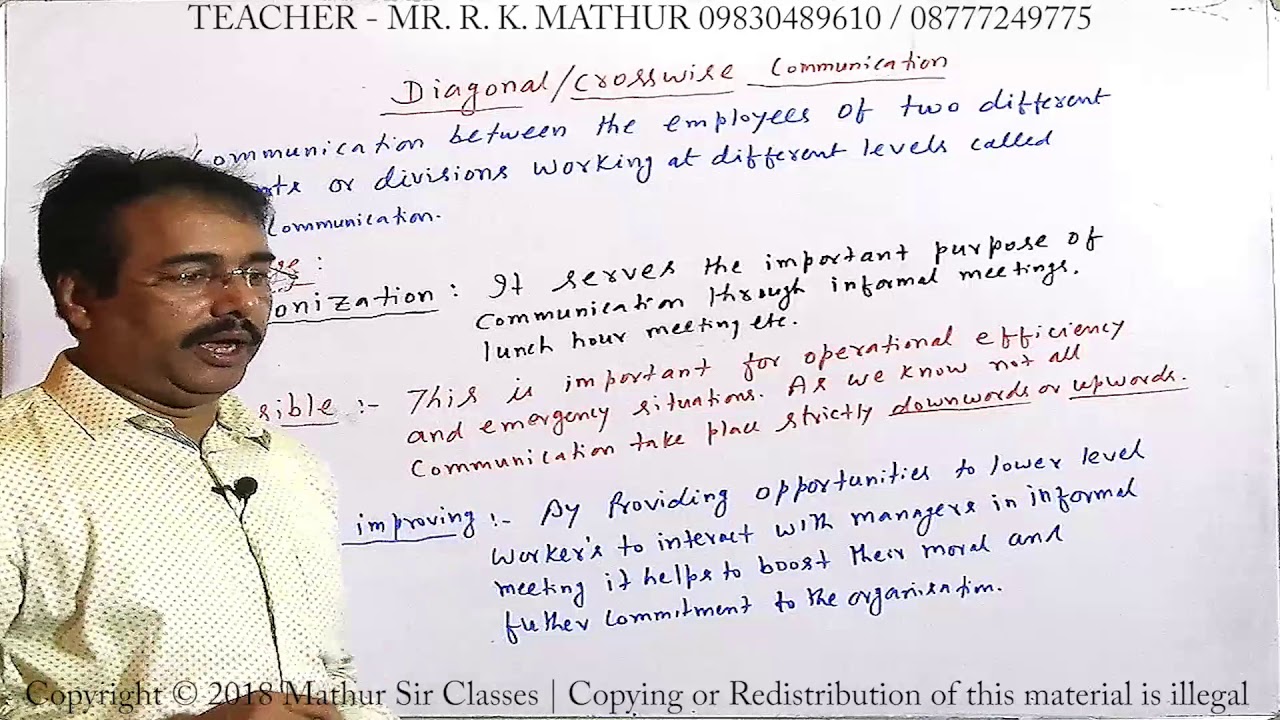 TEACHER - MR. R. K. MATHUR 09830489610 / 08777249775
Diagonal/Crosswise Communication
Communication between the employees of two different
nts or divisions working at different levels called
Communication.
:
onization : It serves the important purpose of
Communication through informal meetings.
lunch hour meeting etc.
sible :- This is important for operational efficiency
and emergency situations. As we know not all
Communication take place strictly downwords or upwords.
improving :- By Providing opportunities to lower level
worker's to interact with managers in informal
meeting it helps to boost their moral and
futher commitment to the organisation.
Copyright © 2018 Mathur Sir Classes | Copying or Redistribution of this material is illegal